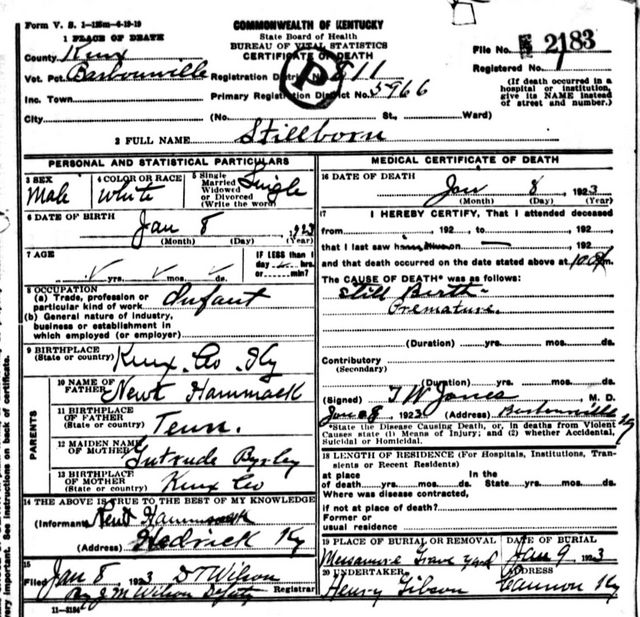 Form V. S. 1—125m—4-19-19
COMMONWEALTH OF KENTUCKY
State Board of Health
BUREAU OF VITAL STATISTICS
CERTIFICATE OF DEATH
1 PLACE OF DEATH
County Knox
Vot. Pct. Barbourville
Inc. Town
City
Registration District No. 811
Primary Registration District No. 5966
(No. St., Ward)
File No. 2183
Registered No. 1
(If death occurred in a hospital or institution, give its NAME instead of street and number.)
2 FULL NAME Stillborn
PERSONAL AND STATISTICAL PARTICULARS
3 SEX
Male
4 COLOR OR RACE
White
5 Single
Married
Widowed
or Divorced
(Write the word)
Single
6 DATE OF BIRTH
Jan 8 1923
(Month) (Day) (Year)
7 AGE
yrs. mos. ds.
IF LESS than 1
day hrs.
or min?
8 OCCUPATION
(a) Trade, profession or
particular kind of work Infant
(b) General nature of industry,
business or establishment in
which employed (or employer)
9 BIRTHPLACE
(State or country) Knox Co Ky
PARENTS
10 NAME OF
FATHER Newt Hammack
11 BIRTHPLACE
OF FATHER
(State or country) Tenn.
12 MAIDEN NAME
OF MOTHER Gutrude Byrley
13 BIRTHPLACE
OF MOTHER
(State or country) Knox Co
14 THE ABOVE IS TRUE TO THE BEST OF MY KNOWLEDGE
(Informant) Newt Hammack
(Address) Hedrick Ky
15
Filed Jan 8 1923 D T Wilson
By J M Wilson Deputy Registrar
11—3184
MEDICAL CERTIFICATE OF DEATH
16 DATE OF DEATH
Jan 8, 1923
(Month) (Day) (Year)
17 I HEREBY CERTIFY, That I attended deceased
from 192 to 192
that I last saw alive on 192
and that death occurred on the date stated above at 10 m.
The CAUSE OF DEATH* was as follows:
Still Birth
Premature.
(Duration) yrs. mos. ds.
Contributory
(Secondary)
(Duration) yrs. mos. ds.
(Signed) T W Jones M. D.
Jan 8 1923 (Address) Barbourville Ky
*State the Disease Causing Death, or, in deaths from Violent
Causes state (1) Means of Injury; and (2) whether Accidental,
Suicidal or Homicidal.
18 LENGTH OF RESIDENCE (For Hospitals, Institutions, Transients or Recent Residents)
at place In the
of death yrs. mos. ds. State yrs. mos. ds.
Where was disease contracted,
if not at place of death?
Former or
usual residence
19 PLACE OF BURIAL OR REMOVAL
Grave Yard
DATE OF BURIAL
Jan 9 1923
20 UNDERTAKER
Henry Gibson
ADDRESS
Cannon Ky
very important. See instructions on back of certificate.